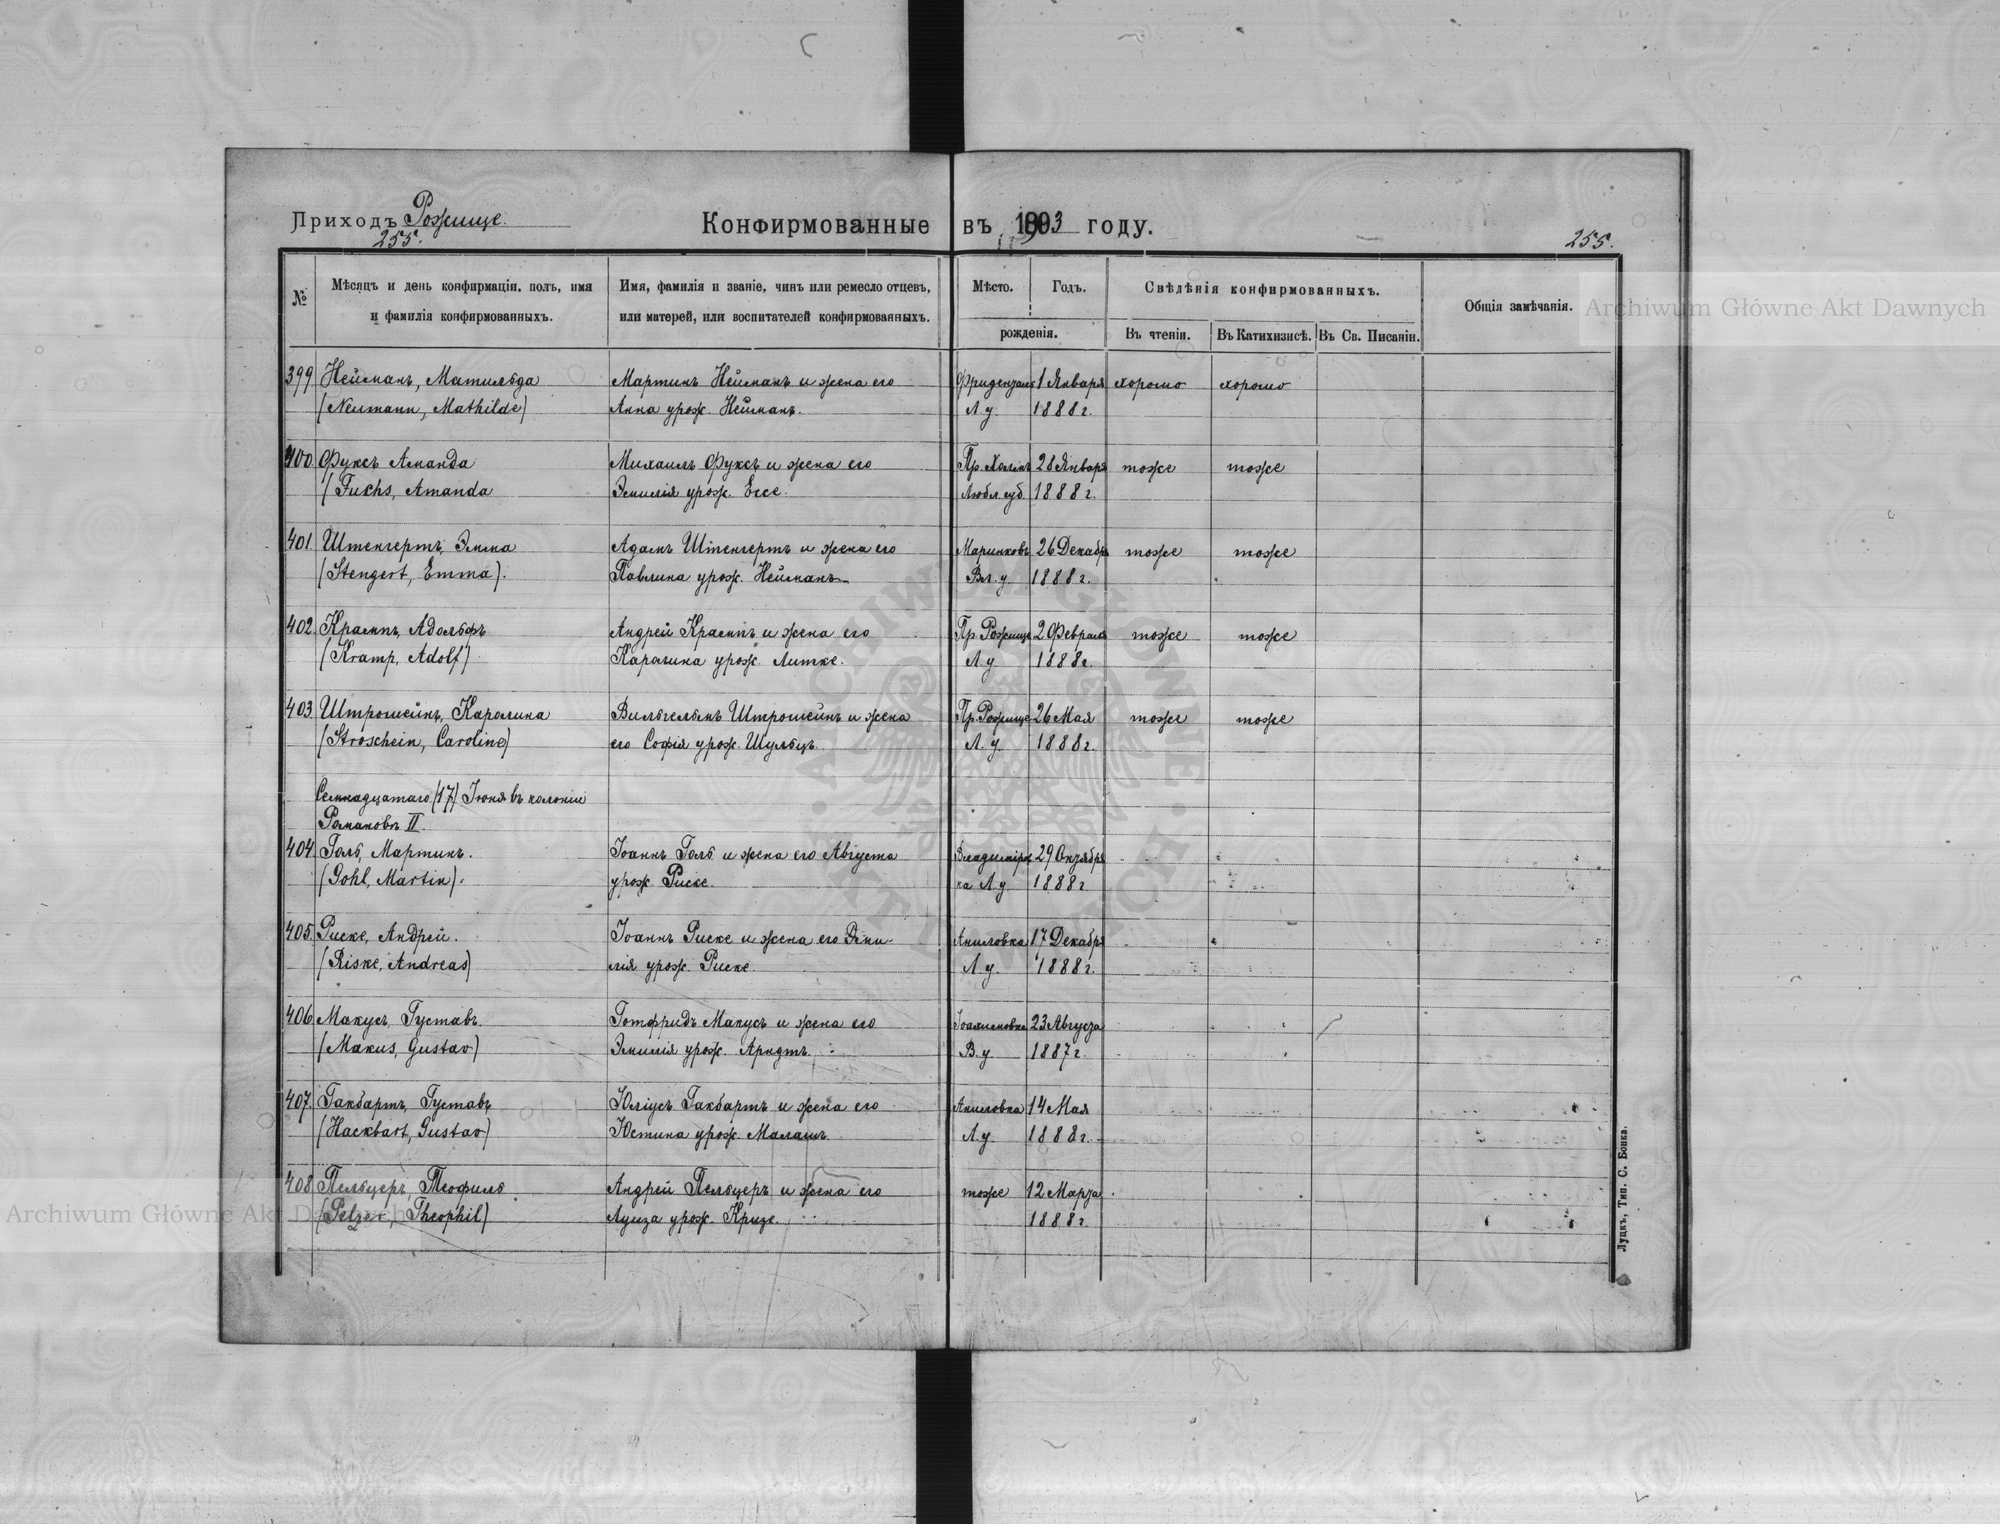 Приходъ Рожище.
255.
Конфирмованные въ 1903 году.
255.
№
Мѣсяцъ и день конфирмаціи, полъ, имя
и фамилія конфирмованныхъ.
Имя, фамилія и званіе, чинъ или ремесло отцевъ,
или матерей, или воспитателей конфирмованныхъ.
Мѣсто. Годъ.
рожденія.
Свѣдѣнія конфирмованныхъ.
Въ чтеніи. Въ Катихизисѣ. Въ Св. Писаніи.
Общія замѣчанія.
Archiwum Główne Akt Dawnych
399 Нейманъ, Матильда Мартинъ Нейманъ и жена его Фриденталь 1 Января хорошо хорошо
(Neumann, Mathilde) Анна урож. Нейманъ. Л. у. 1888 г.
400 Фуксъ Аманда Михаилъ Фуксъ и жена его Пр. Холмъ 28 Января тоже тоже
(Fuchs, Amanda Эмилія урож. Ессе. Любл. губ. 1888 г.
401. Штенгертъ, Эмма Адамъ Штенгертъ и жена его Маринковъ 26 Декабр тоже тоже
(Stengert, Emma). Павлина урож. Нейманъ Вл. у. 1888 г.
402. Крампъ, Адольфъ Андрей Крампъ и жена его Пр. Рожище 2 Февраля тоже тоже
(Kramp, Adolf) Каролина урож. Литке. Л. у. 1888 г.
403. Штрошейнъ, Каролина Вильгельмъ Штрошейнъ и жена Пр. Рожище 26 Мая тоже тоже
(Stroschein, Caroline) его Софія урож. Шульцъ. Л. у. 1888 г.
Семнадцатаго (17) Іюня въ колоніи
Романовъ II.
404. Голь, Мартинъ. Іоаннъ Голь и жена его Августа Владимиров 29 Октября
(Gohl, Martin). урож. Риске. ка Л. у. 1888 г.
405. Риске, Андрей. Іоаннъ Риске и жена его Эми- Аниловка 17 Декабря
(Riske, Andreas) лія урож. Риске. Л. у. 1888 г.
406. Макусъ, Густавъ. Готфридъ Макусъ и жена его 23 Августа
(Makus, Gustav) Эмилія урож. Арндтъ. В. у. 1887 г.
407. Гакбартъ, Густавъ Юліусъ Гакбартъ и жена его Аниловка 14 Мая
(Hackbart, Gustav) Юстина урож. Малашъ. Л. у. 1888 г.
408. Пельцеръ, Теофиль Андрей Пельцеръ и жена его тоже 12 Марта
(Pelzer, Theophil) Луиза урож. Кризе. 1888 г.
Луцкъ, Тип. С. Бонка.
Archiwum Główne Akt Dawnych
ARCHIWUM GŁÓWNE AKT DAWNYCH